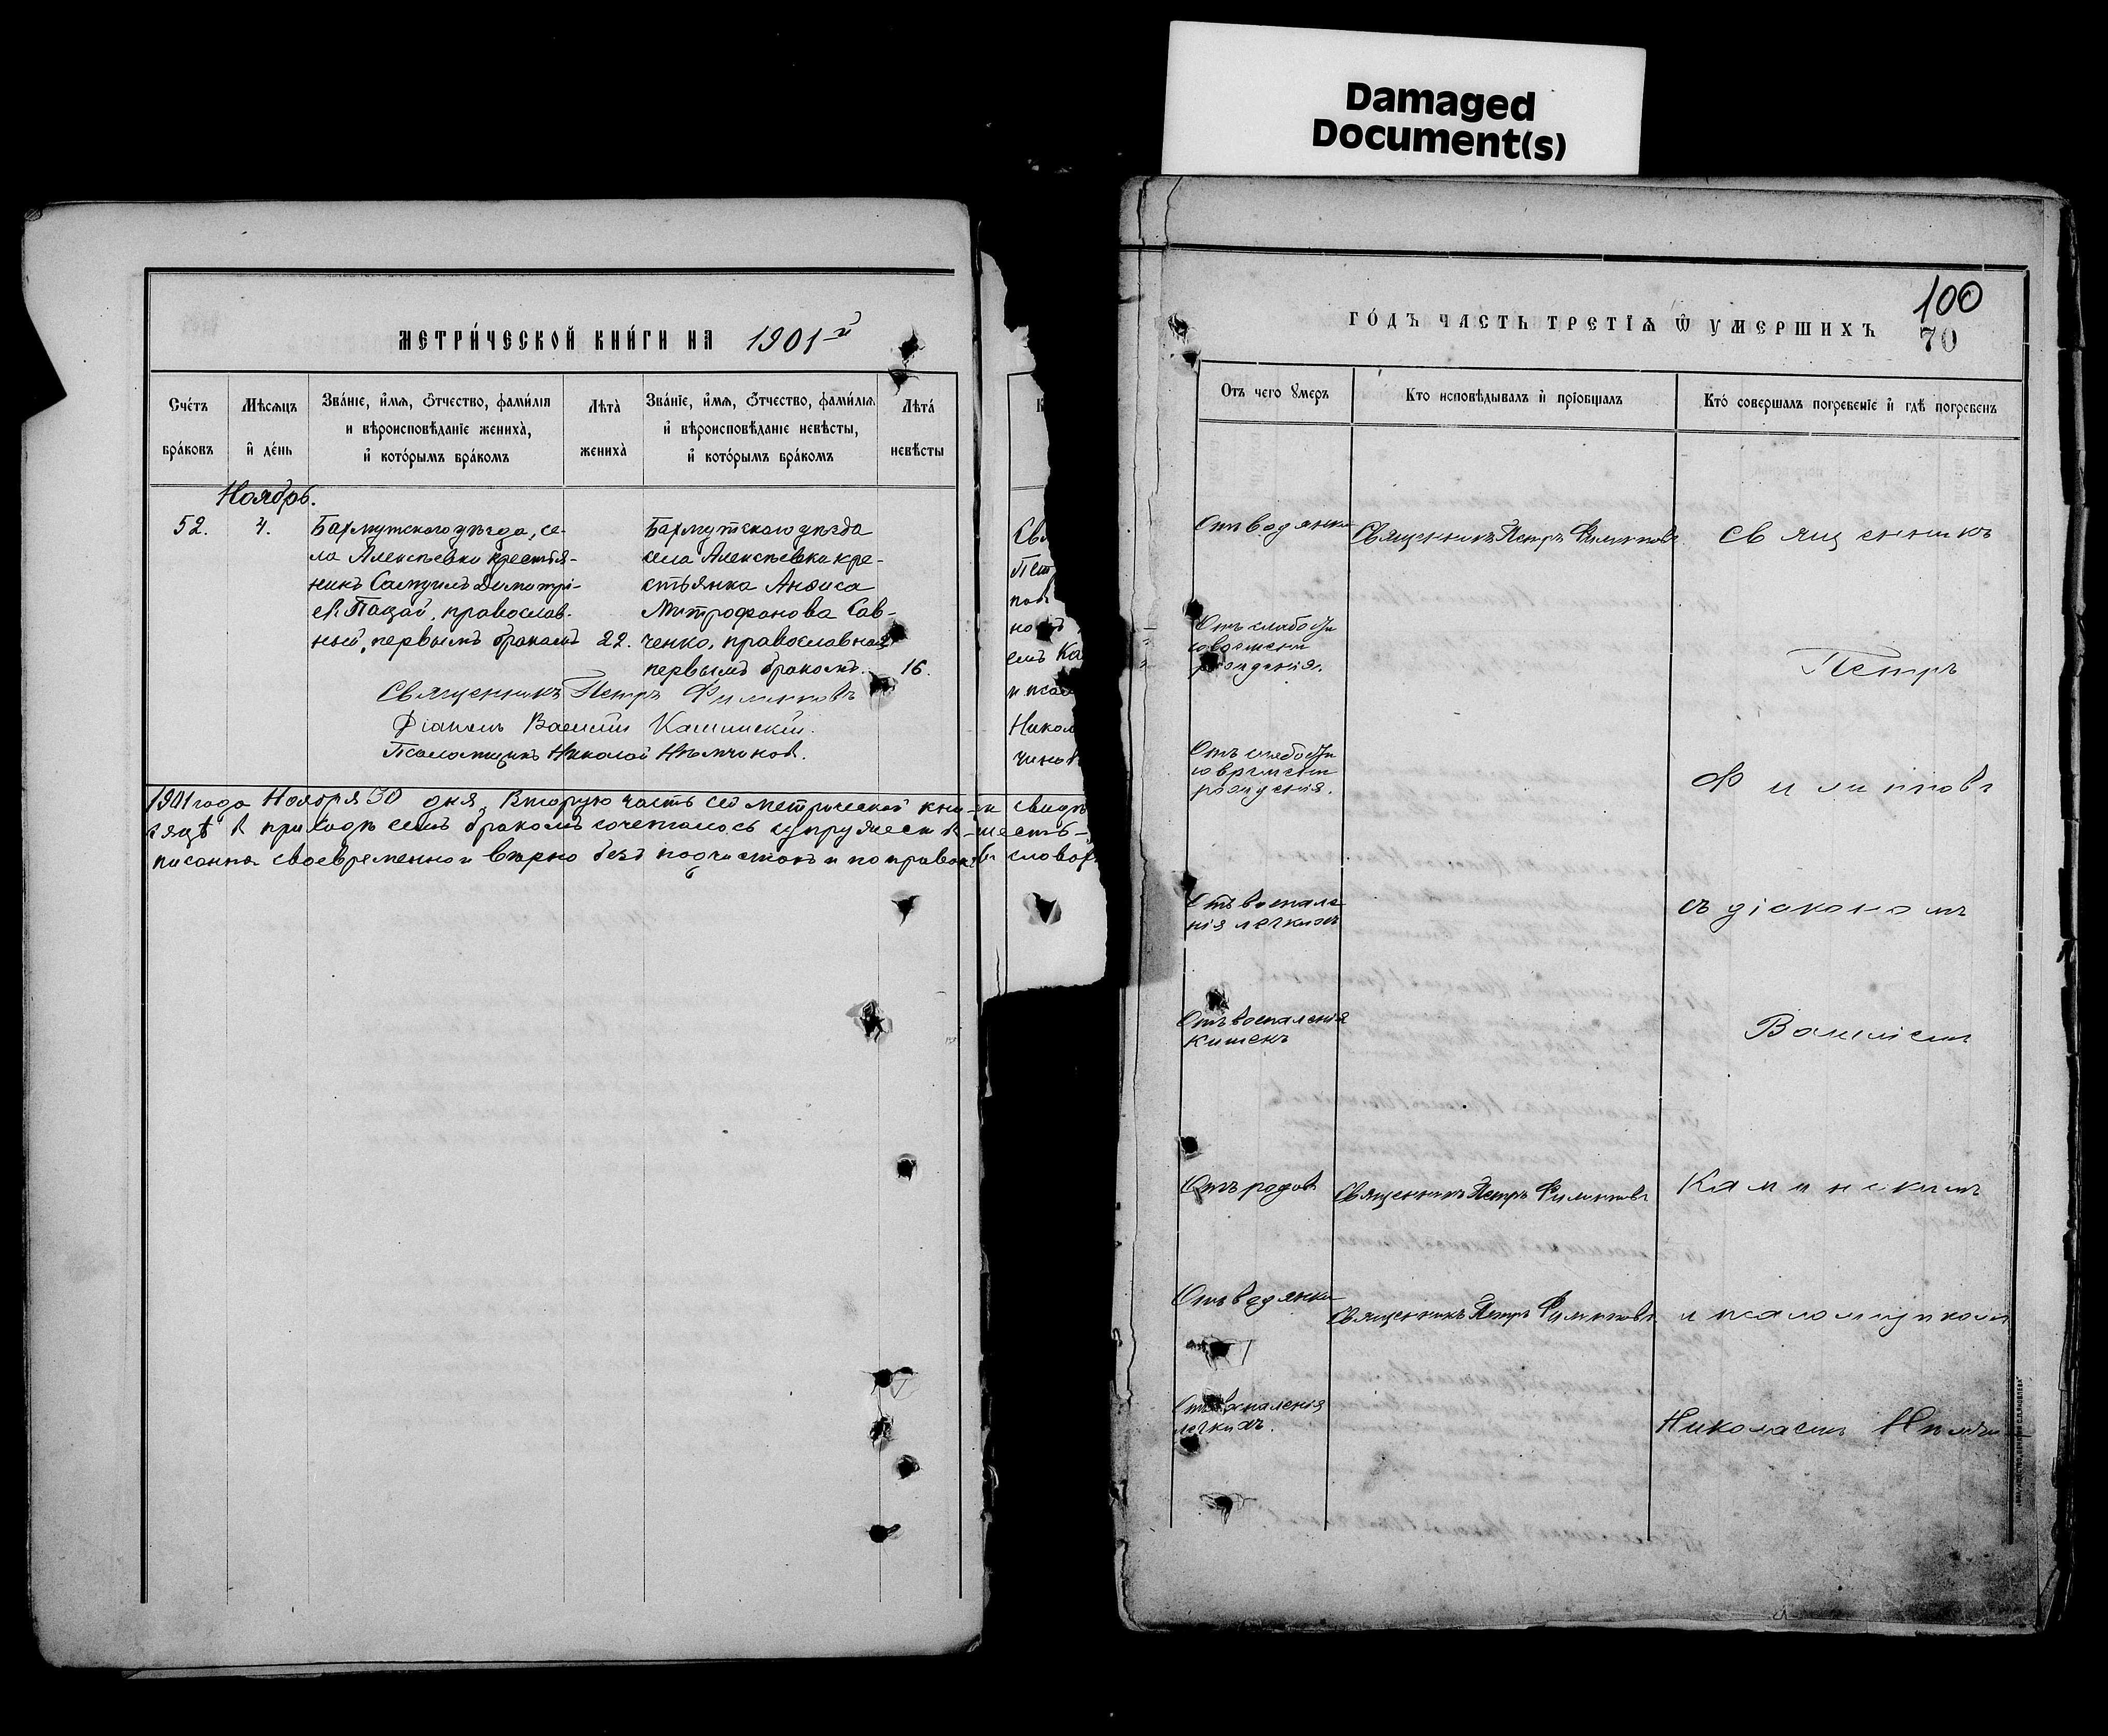 Damaged
Document(s)
МЕТРИ́ЧЕСКОЙ КНИ́ГИ НА 1901-й
Сче́тъ
бра́ковъ
Мѣсяцъ
и҆ де́нь
Зва́нїе, и҆́мѧ, ѻ҆́тчество, фами́лїѧ
и вѣроисповѣ́данїе жениха̀,
и҆ кото́рымъ бра́комъ
Лѣта̀
жениха̀
Зва́нїе, и҆́мѧ, ѻ҆́тчество, фами́лїѧ
и҆ вѣроисповѣ́данїе невѣ́сты,
и҆ кото́рымъ бра́комъ
Лѣта́
невѣ́сты
Ноябрь.
52.
4.
Бахмутского уѣзда, се-
ла Алексѣевки крестья-
нинъ Самуилъ Димитрі-
ев. Пацай, православ-
ный, первымъ бракомъ
22.
Бахмутского уѣзда
села Алексѣевки кре-
стьянка Анѳиса
Митрофанова Сав-
ченко, православная
первымъ бракомъ.
16.
Священникъ Петръ Филипповъ
Діаконъ Василій Каминскій.
Псаломщикъ Николай Нѣмчиновъ.
1901 года Ноября 30 дня. Вторую часть сей метрической кни-
въ приходѣ семъ бракомъ сочеталось супружеств-
писанна своевременно и вѣрно безъ подчистокъ и поправокъ
Никол
ГО́ДЪ ЧА́СТЬ ТРЕ́ТЇѦ Ѡ҆ У҆МЕ́РШИХЪ
100
70
Отъ чего ᲂу҆меръ
Кто исповѣдывалъ и҆ прїобщалъ
Кто́ совершалъ погребе́нїе и҆ гдѣ̀ погребе́нъ
Отъ водянки
Священникъ Петръ Филипповъ
Священникъ
Отъ слабости
со времени
рожденія.
Петръ
Отъ слабости
со времени
рожденія.
Филипповъ
Отъ воспале-
нія легкихъ
съ діакономъ
Отъ воспаленія
кишекъ
Василіемъ
Отъ родовъ
Священникъ Петръ Филипповъ
Каминскимъ
Отъ водянки
Священникъ Петръ Филипповъ
и псаломщикомъ
Отъ воспаленія
легкихъ.
Николаемъ Нѣмчи-